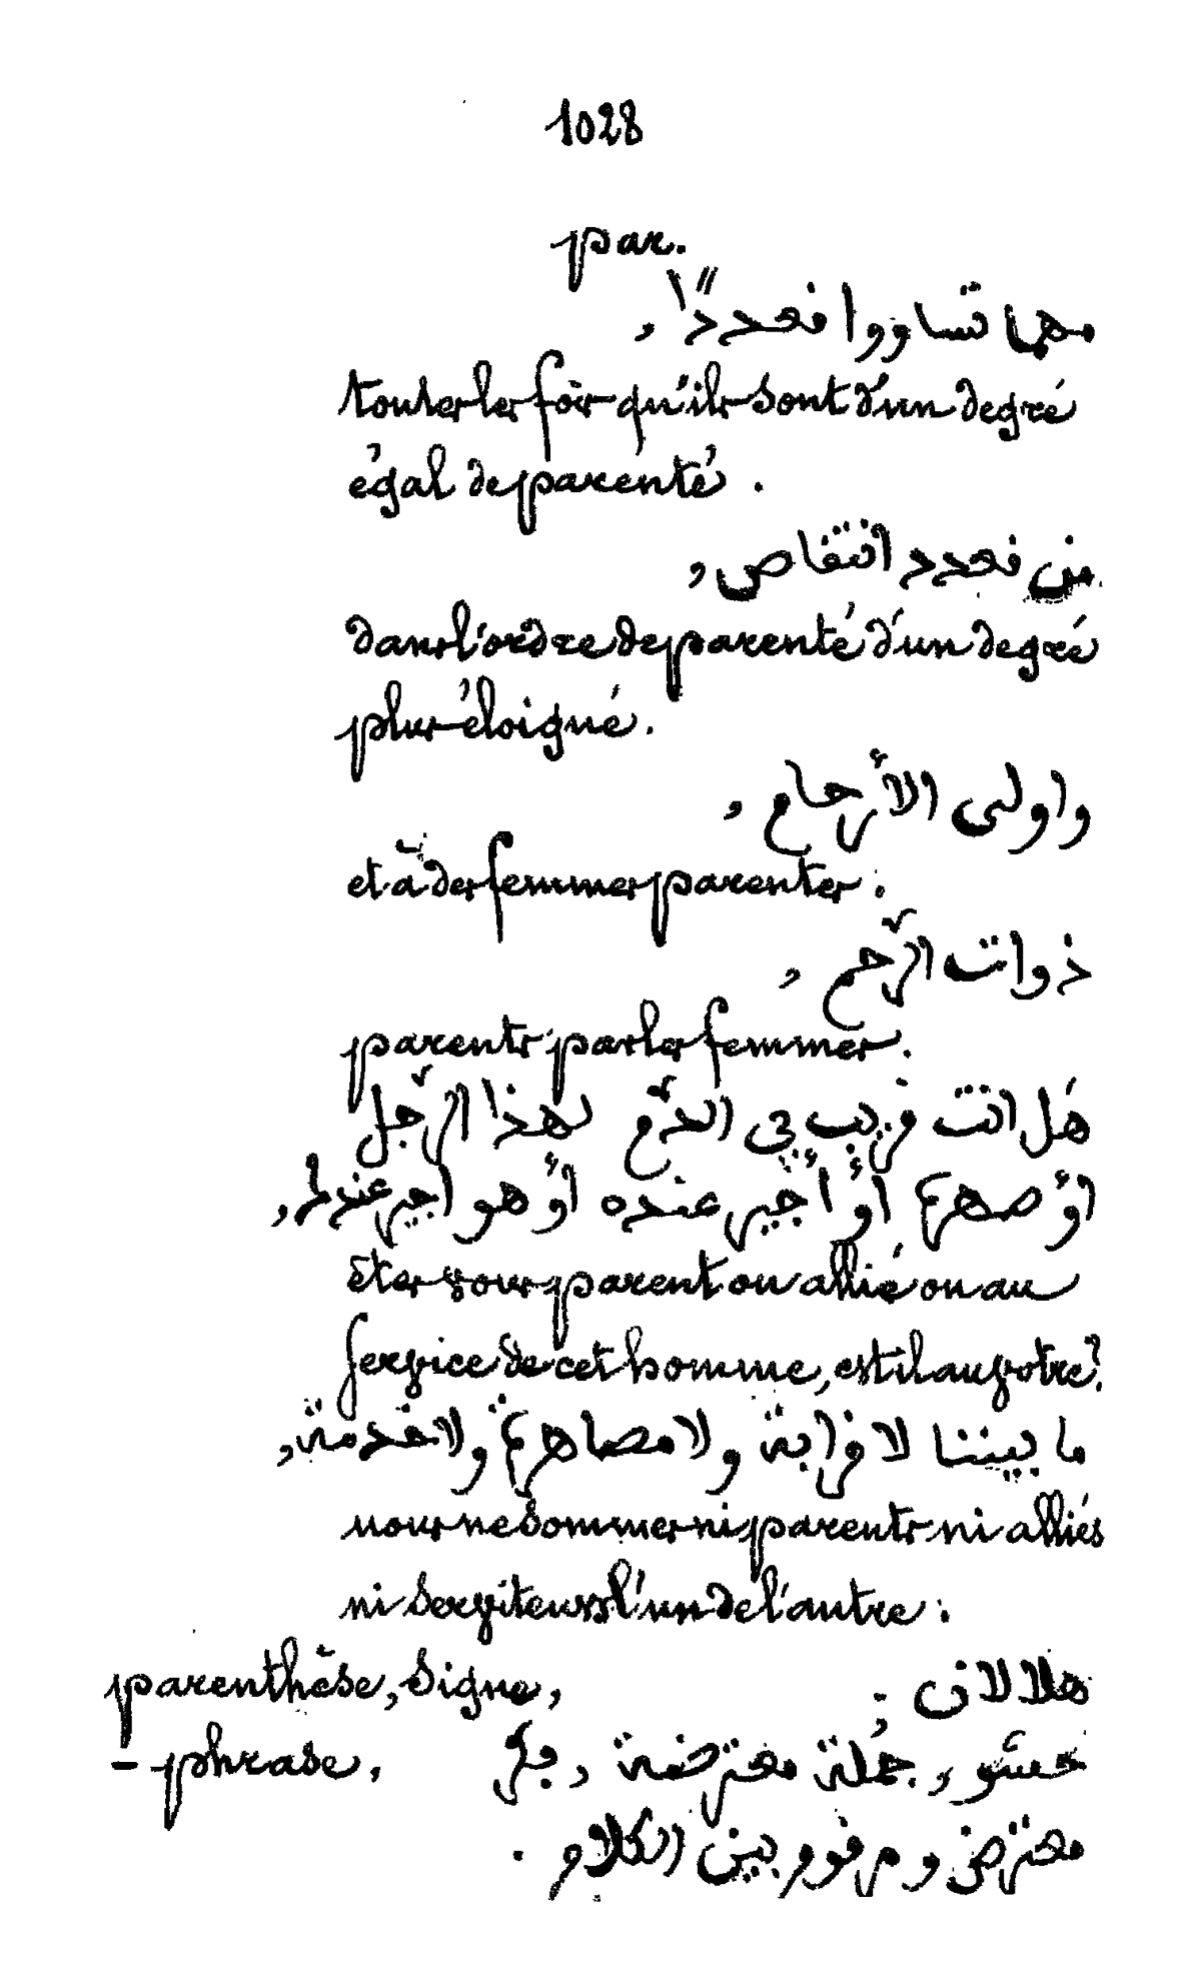 1028
par.
مهما تساووا فعددًا ,
toutes les fois qu'ils sont d'un degré
égal de parenté .
من فعدد انتقاص ,
dans l'ordre de parenté d'un degré
plus éloigné .
واولى الأرحام ,
et à des femmes parentes .
ذوات الرّحم ,
parents par les femmes .
هَل انت قريب في الدّم لهذا الرّجل
أو صهره أو أجير عنده أو هو أجير عندك ,
êtes vous parent ou allié ou au
service de cet homme, est il au votre ?
ما بيننا لا قرابة ولا مصاهرة ولا خدمة ,
nous ne sommes ni parents ni alliés
ni serviteurs l'un de l'autre .
parenthèse, signe, هلالان ;
- phrase, حشو , جُملة معترضة ,
معترض و بين الكلام .